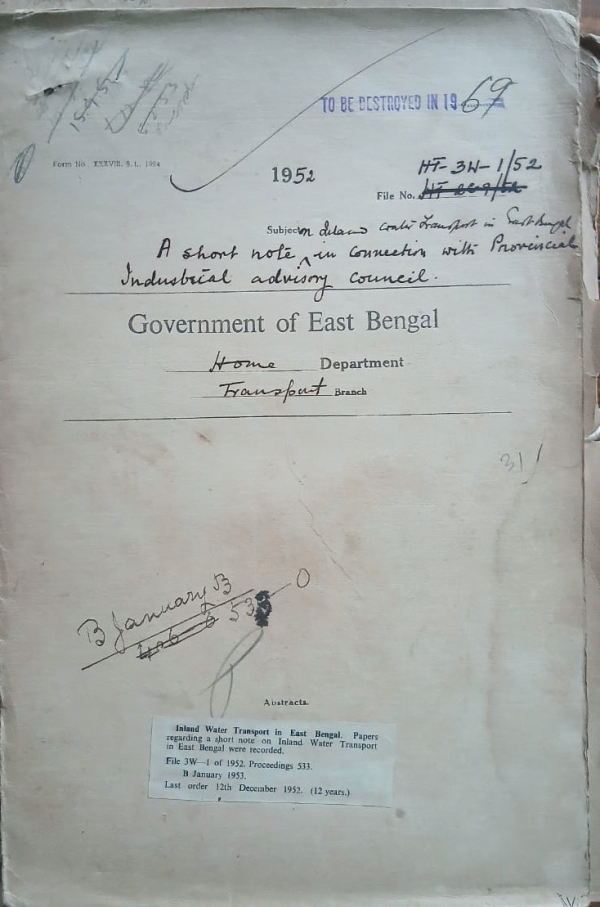 TO BE DESTROYED IN 1969
Form No. XXXVIII. S. I., 1954
1952
HT-3W-1/52
File No.
Subject on Inland water Transport in East Bengal
A short note ^ in connection with Provincial
Industrial advisory council.
Government of East Bengal
Home Department
Transport Branch
31
B January 53
533
Abstracts.
Inland Water Transport in East Bengal. Papers
regarding a short note on Inland Water Transport
in East Bengal were recorded.
File 3W—1 of 1952. Proceedings 533.
B January 1953.
Last order 12th December 1952. (12 years.)